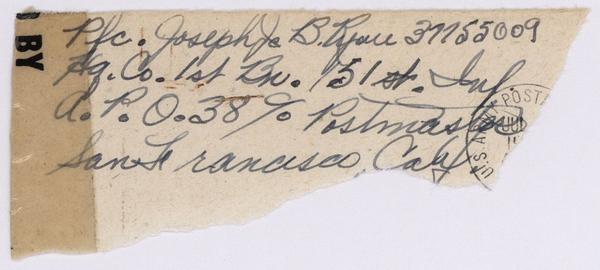 BY
Pfc. Joseph B. Ryan 37155009
Hq. Co. 1st Bn. 151 st. Inf.
A. P. O. 38 % Postmaster
San Francisco Calif
U.S. ARMY POST
JUL